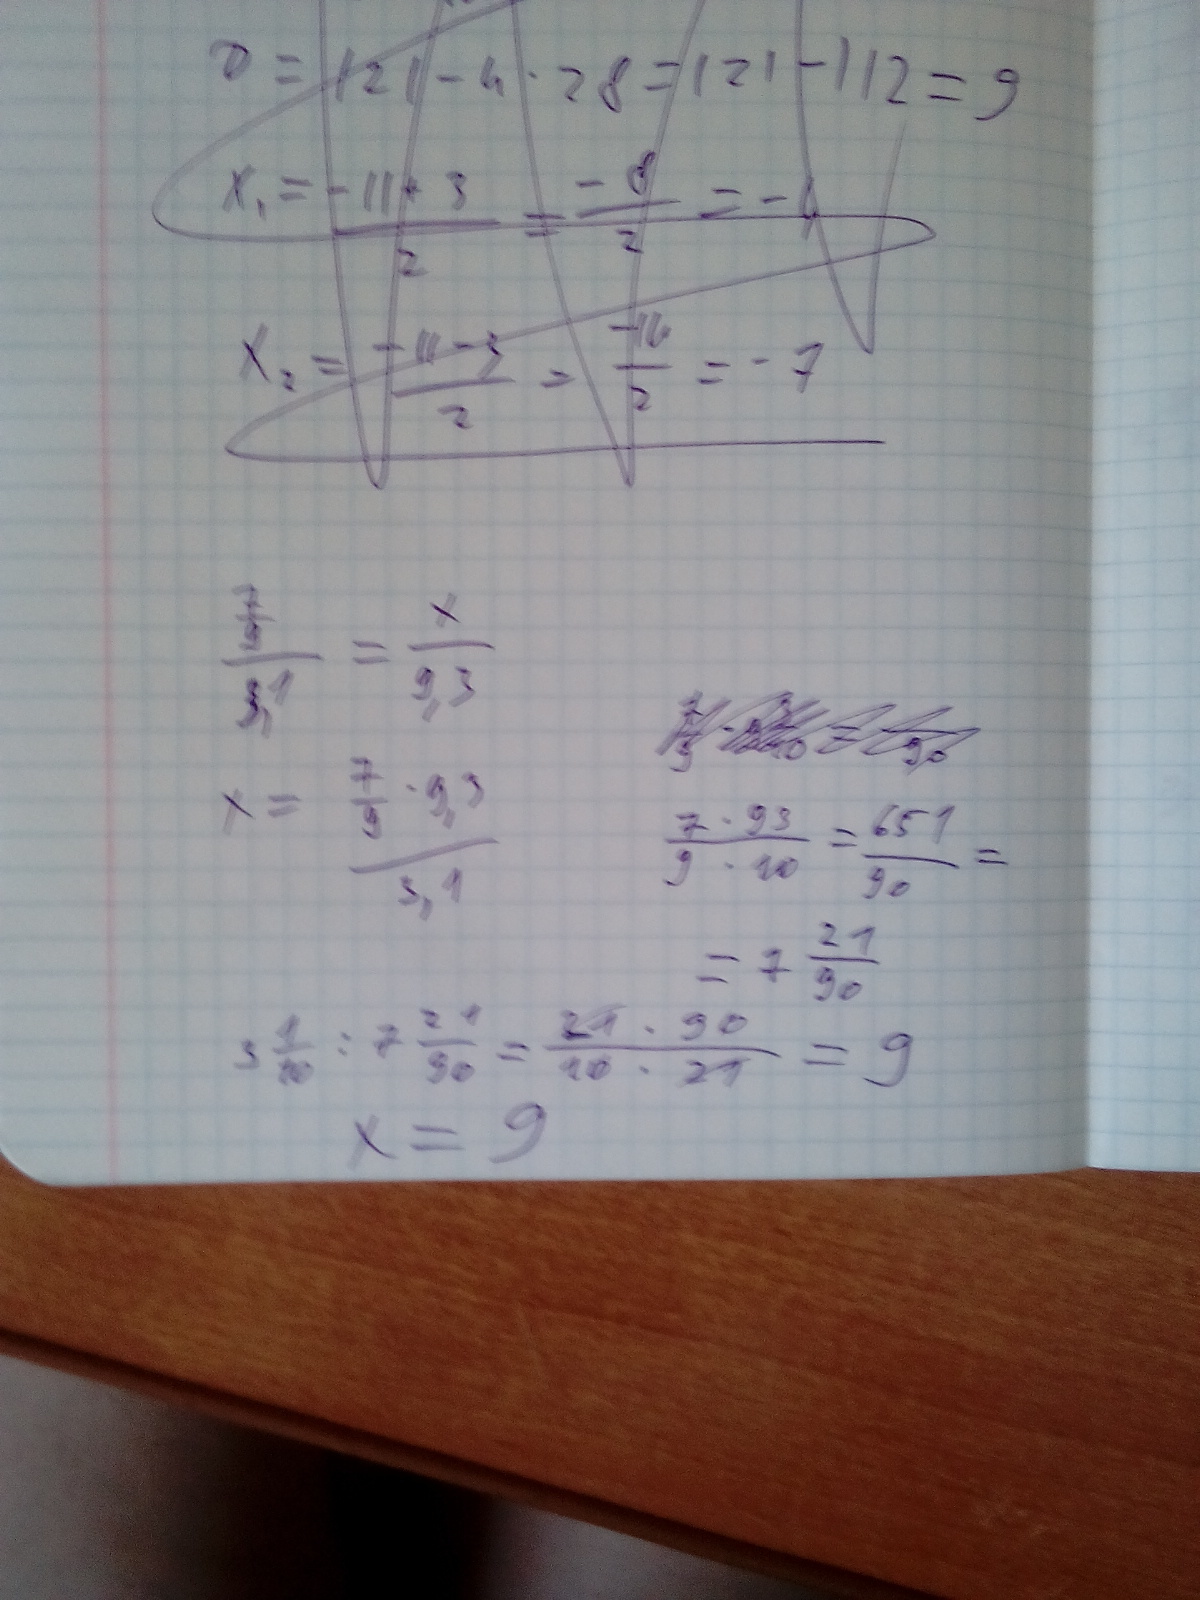 D = 121 - 4 · 28 = 121 - 112 = 9
x₁ = (-11 + 3)/2 = -8/2 = -4
x₂ = (-11 - 3)/2 = -14/2 = -7
(7/9)/3,1 = x/9,3
x = (7/9 · 9,3)/3,1
(7 · 93)/(9 · 10) = 651/90 =
= 7 21/90
3 1/10 : 7 21/90 = (21 · 90)/(10 · 21) = 9
x = 9